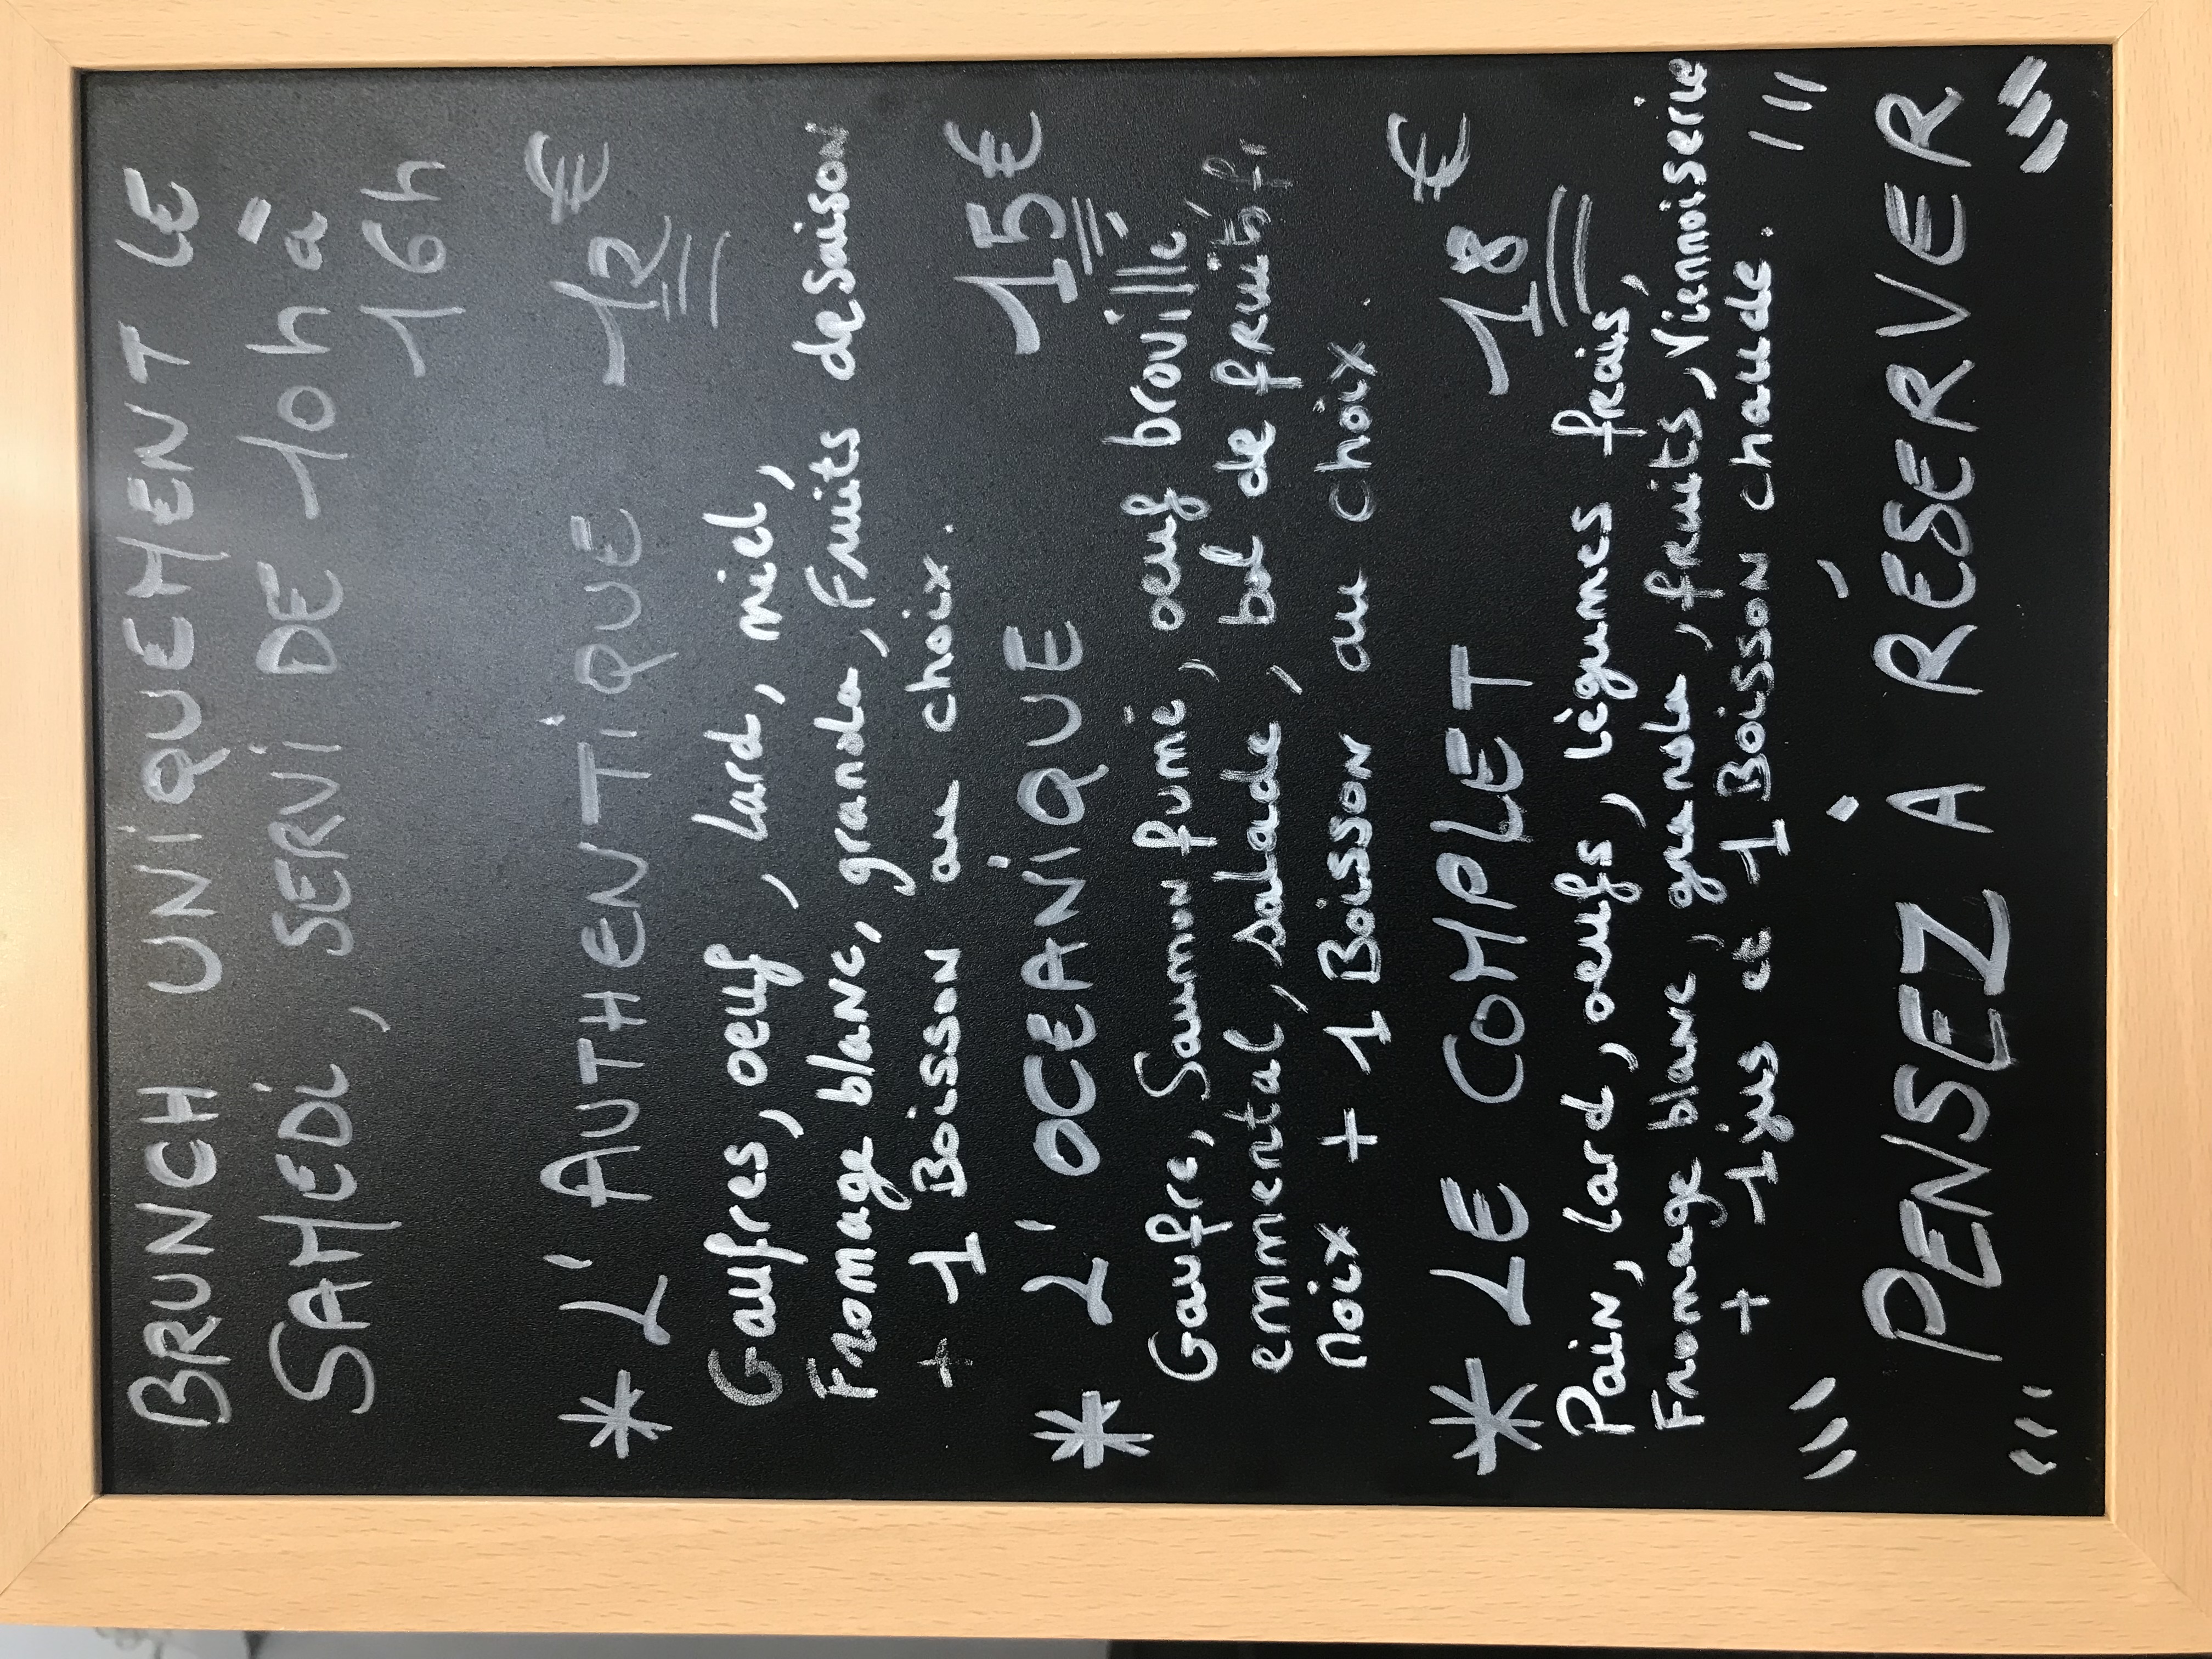 BRUNCH UNIQUEMENT LE
SAMEDI, SERVI DE 10h à
16h
* L'AUTHENTIQUE 12 €
Gaufres, oeuf, lard, miel,
Fromage blanc, granola, Fruits de saison
+ 1 Boisson au choix.
* L'OCEANIQUE 15 €
Gaufre, Saumon fumé, oeuf brouillé,
emmental, salade, bol de fruits f,
noix + 1 Boisson au choix.
* LE COMPLET 18 €
Pain, lard, oeufs, légumes frais,
Fromage blanc, granola, fruits, Viennoiserie
+ 1 jus et 1 Boisson chaude.
"PENSEZ À RÉSERVER"